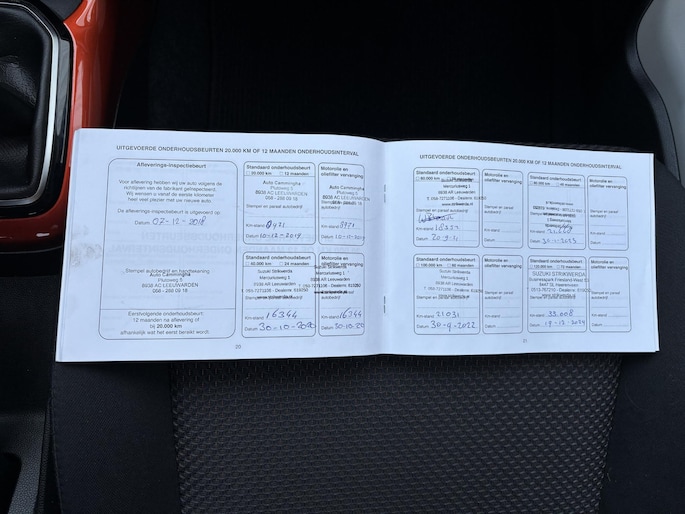 UITGEVOERDE ONDERHOUDSBEURTEN 20.000 KM OF 12 MAANDEN ONDERHOUDSINTERVAL
Afleverings-inspectiebeurt
Voor aflevering hebben wij uw auto volgens de
richtlijnen van de fabrikant geïnspecteerd.
Wij wensen u vanaf de eerste kilometer
heel veel plezier met uw nieuwe auto.
De afleverings-inspectiebeurt is uitgevoerd op:
Datum: 07-12-2018
Stempel autobedrijf en handtekening
Auto Camminga
Plutoweg 5
8938 AC LEEUWARDEN
058 - 288 09 18
Eerstvolgende onderhoudsbeurt:
12 maanden na aflevering of
bij 20.000 km
afhankelijk wat het eerst bereikt wordt.
Standaard onderhoudsbeurt
20.000 km 12 maanden
Auto Camminga
Plutoweg 5
8938 AC LEEUWARDEN
058 - 288 09 18
Stempel en paraaf autobedrijf
Km-stand: 8921
Datum: 10-12-2019
Motorolie en
oliefilter vervanging
Auto Camminga
Plutoweg 5
8938 AC LEEUWARDEN
Km-stand: 8921
Datum: 10-12-2019
Standaard onderhoudsbeurt
40.000 km 24 maanden
Suzuki Strikwerda
Mercuriusweg 1
8938 AR Leeuwarden
Km-stand: 16344
Datum: 30-10-2020
Motorolie en
oliefilter vervanging
Suzuki Strikwerda
Mercuriusweg 1
8938 AR Leeuwarden
Km-stand: 16344
Datum: 30-10-20
20
UITGEVOERDE ONDERHOUDSBEURTEN 20.000 KM OF 12 MAANDEN ONDERHOUDSINTERVAL
Standaard onderhoudsbeurt
Suzuki Strikwerda
Mercuriusweg 1
8938 AR Leeuwarden
Stempel en paraaf autobedrijf
Km-stand:
Datum:
Motorolie en
oliefilter vervanging
Stempel en paraaf
autobedrijf
Km-stand:
Datum:
Standaard onderhoudsbeurt
80.000 km 48 maanden
Km-stand:
Datum:
Motorolie en
oliefilter vervanging
Stempel en paraaf
autobedrijf
Km-stand:
Datum:
Standaard onderhoudsbeurt
100.000 km 60 maanden
Suzuki Strikwerda
Mercuriusweg 1
8938 AR Leeuwarden
Stempel en paraaf autobedrijf
Km-stand: 21031
Datum: 30-9-2022
Motorolie en
oliefilter vervanging
Stempel en paraaf
autobedrijf
Km-stand:
Datum:
Standaard onderhoudsbeurt
SUZUKI STRIKWERDA
Businesspark Friesland West
Heerenveen
Stempel en paraaf autobedrijf
Km-stand: 33.008
Datum: 19-12-2024
Motorolie en
oliefilter vervanging
Stempel en paraaf
autobedrijf
Km-stand:
Datum:
21